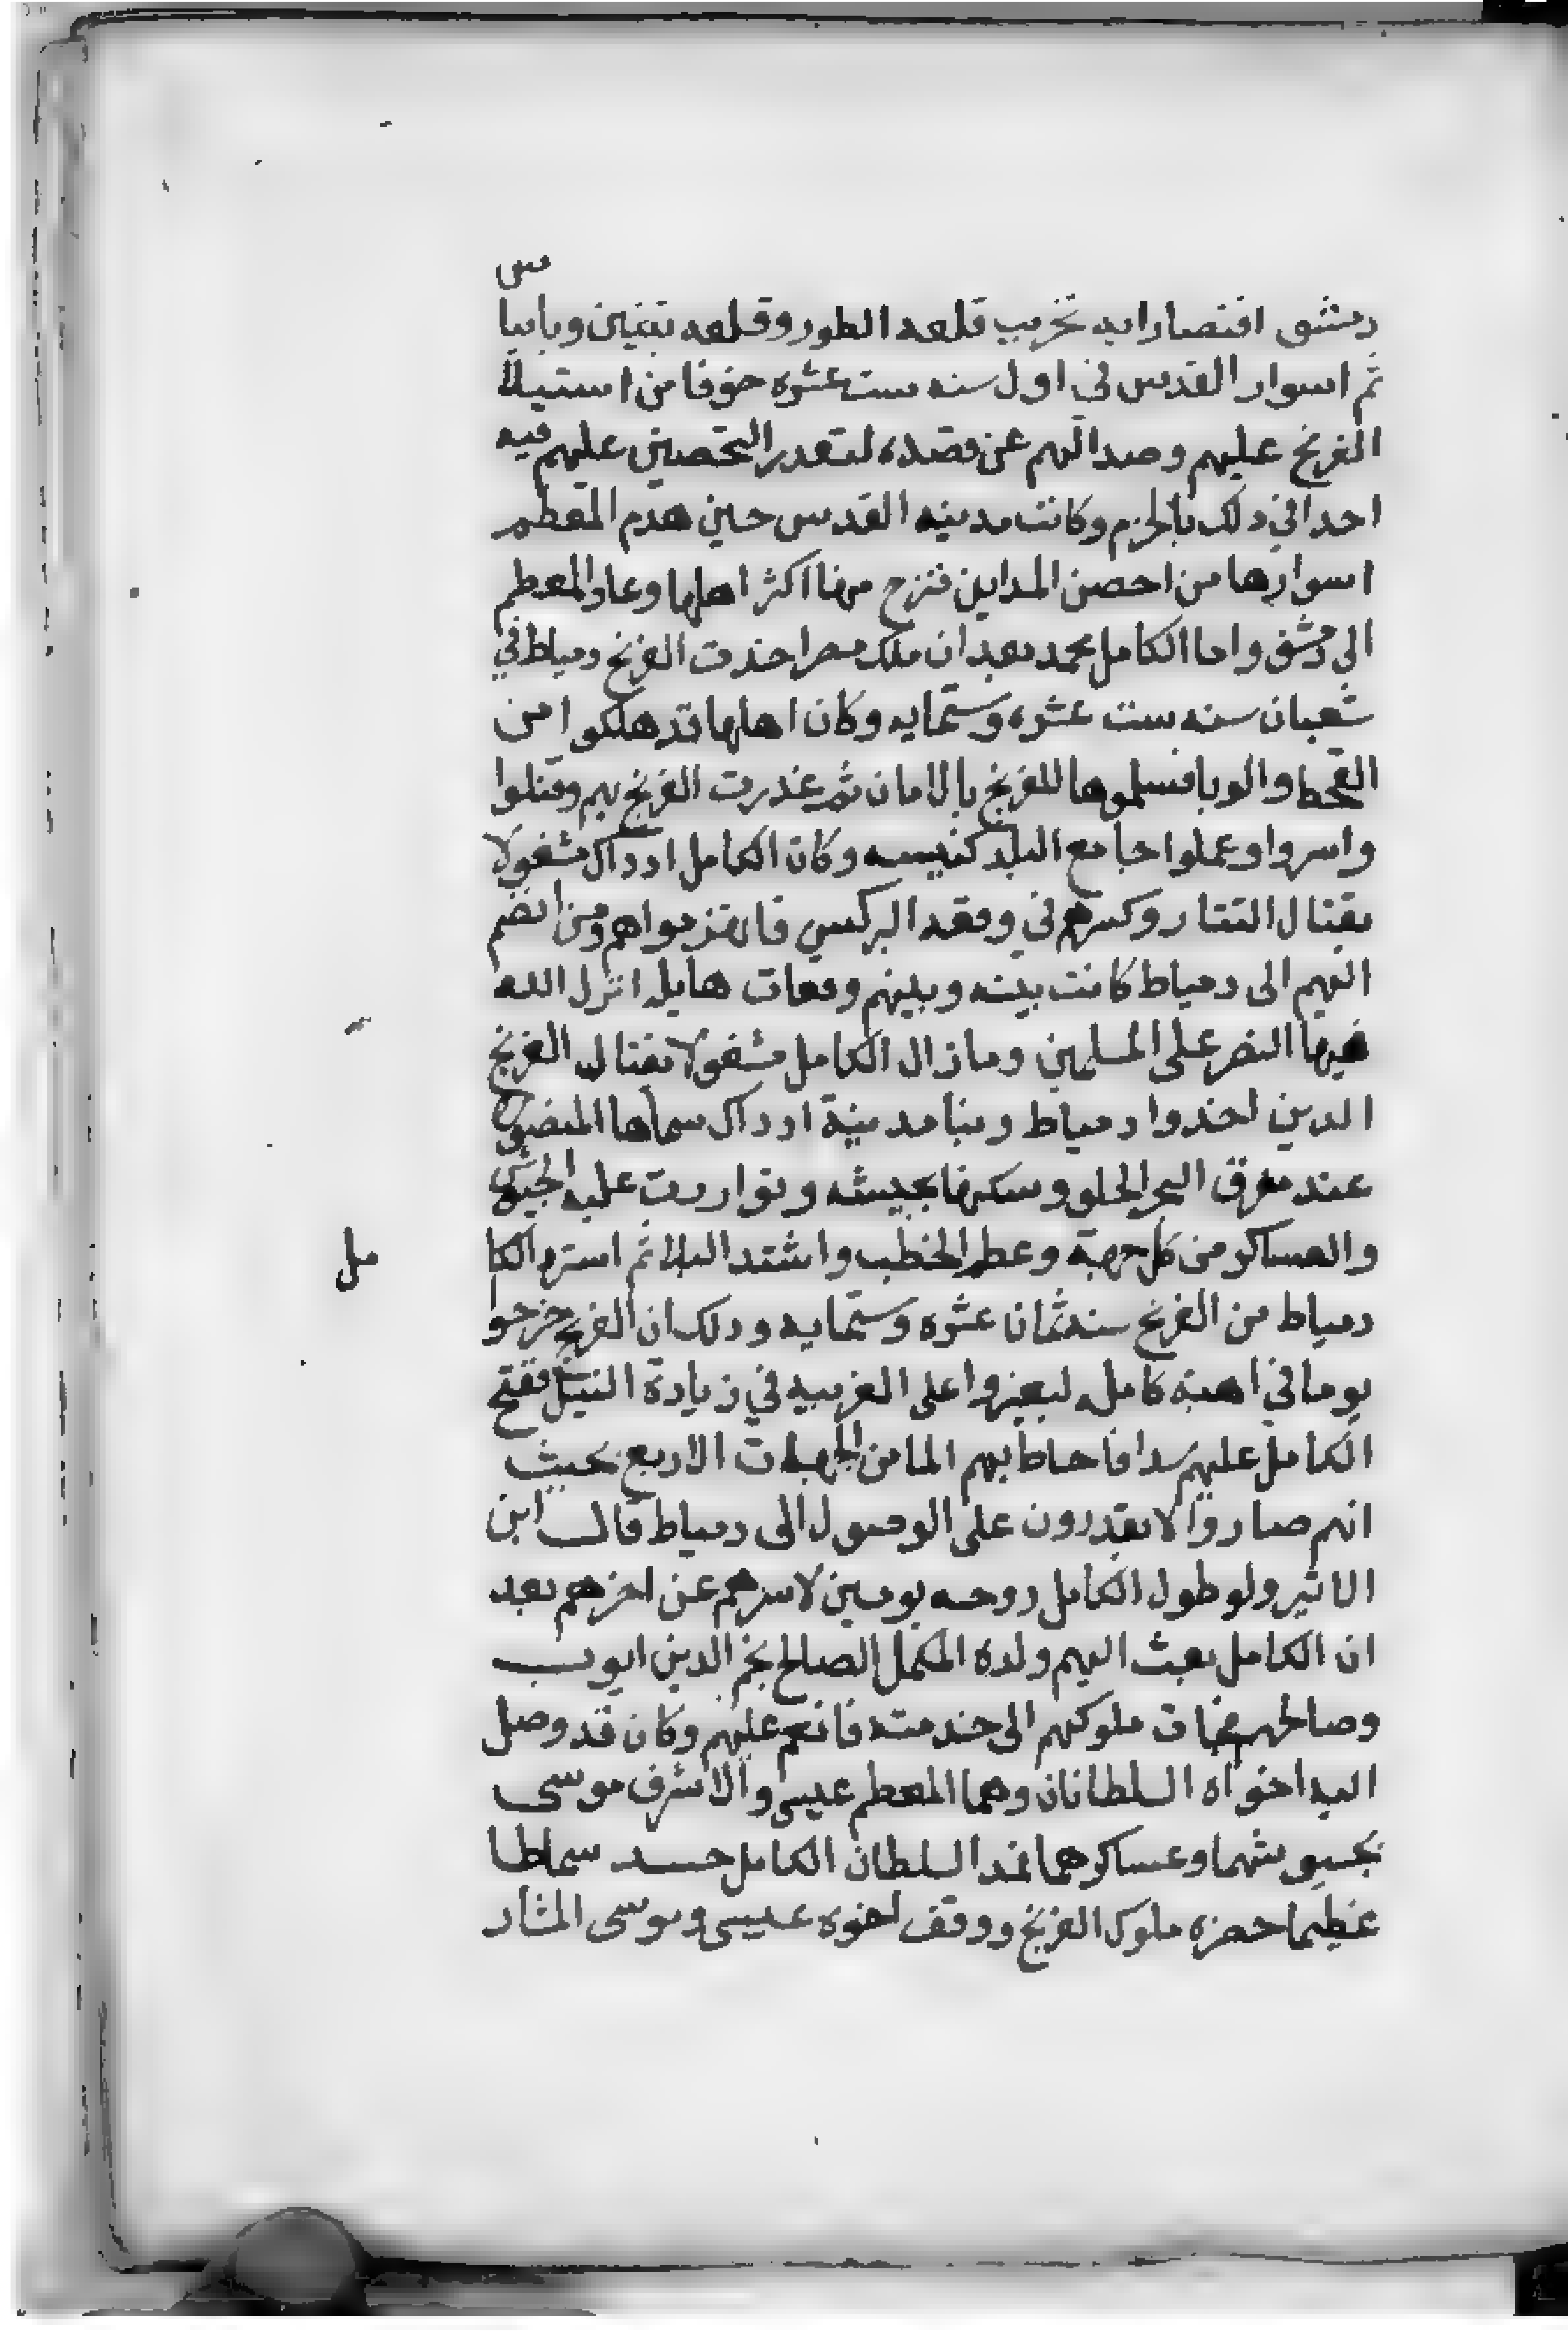 دمشق اقتضا رايه تخريب قلعه الطور وقلعه تبنين وبانيا
س
ثم اسوار القدس في اول سنه ست عشره خوفا من استيلا
الفرنج عليهم وصدا لهم عن قصده لتعدر التحصين عليهم فيه
احدا في دلك بالحزم وكانت مدينه القدس حين هدم المعظم
اسوارها من احصن المداين فنزح منها اكثر اهلها وعاد المعظم
الى دمشق واما الكامل محمد بعد ان ملك مصر اخذت الفرنج دمياط في
شعبان سنه ست عشره وستمايه وكان اهلها قد هلكوا من
القحط والوبا فسلموها للفرنج بالامان ثم غدرت الفرنج بهم وقتلوا
واسروا وعملوا جامع البلد كنيسه وكان الكامل ادداك مشغولا
بقتال التتار وكسرهم في وقعه البركسي فانهزموا هم ومن انضم
اليهم الى دمياط كانت بينه وبينهم وقعات هايله انزل الله
فيها النصر على المسلمين وما زال الكامل مشغولا بقتال الفرنج
الدين اخدوا دمياط وبنا مدينة ادداك سماها المنصوره
عند مفرق البحر الحلو وسكنها بجيشه وتواردت عليه الجيوش
والعساكر من كل جهة وعظم الخطب واشتد البلا ثم استرد الكا
مل
دمياط من الفرنج سنه ثمان عشره وستمايه ودلك ان الفرنج خرجو
يوما في اهبة كامله ليغيروا على الغربيه في زيادة النيل ففتح
الكامل عليهم سدا فاحاط بهم الما من الجهات الاربع بحيث
انهم صاروا لا يقدرون على الوصول الى دمياط قال ابن
الاثير ولو طول الكامل روحه يومين لاسرهم عن اخرهم بعد
ان الكامل بعث اليهم ولده المكمل الصالح نجم الدين ايوب
وصالحهم فجات ملوكهم الى خدمته فانعم عليهم وكان قد وصل
اليه اخواه السلطانان وهما المعظم عيسى والاشرف موسى
بجيوشهما وعساكرهما فمد السلطان الكامل سماطا
عظيما حضره ملوك الفرنج ووقف اخوه عيسى وموسى المشار